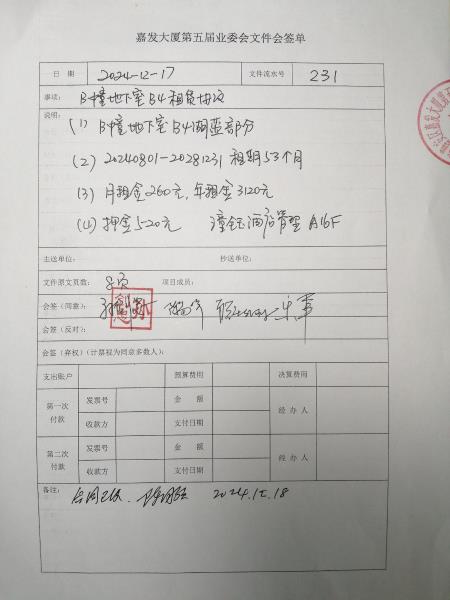 嘉发大厦第五届业委会文件会签单
日 期 2024-12-17 文件流水号 231
事项: B幢地下室B4租赁协议
说明: (1) B幢地下室B4湖蓝部分
(2) 20240801-20281231 租期53个月
(3) 月租金260元,年租金3120元
(4) 押金520元 酒店管理 A16F
主送单位: 抄送单位:
文件原文页数: 项目成员:
会签(同意):
会签(反对):
会签(弃权)(计票视为同意多数人):
支出账户 预算费用 决算费用
第一次付款 发票号 金 额 经 办 人
收款方 支付日期
第二次付款 发票号 金 额 经 办 人
收款方 支付日期
备注: 合同已收. 2024.12.18